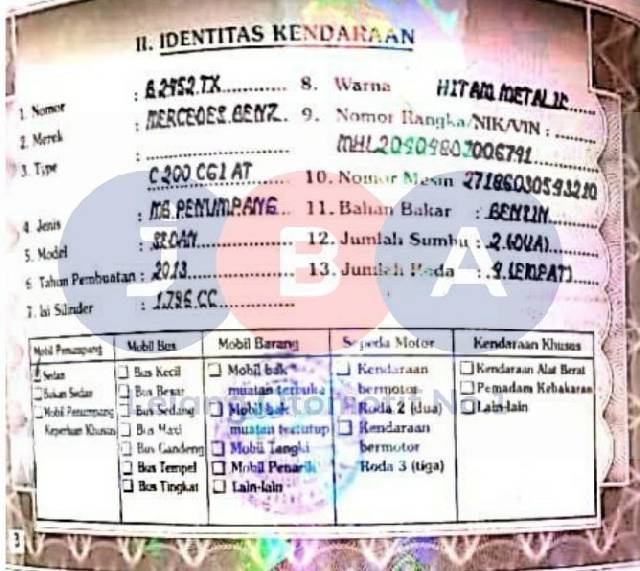 II. IDENTITAS KENDARAAN
1. Nomor : B.2452.TX
2. Merek : MERCEDES.BENZ
3. Type :
C 200 CGI AT
4. Jenis : MB.PENUMPANG
5. Model : SEDAN
6. Tahun Pembuatan : 2013
7. Isi Silinder : 1.796 CC
8. Warna HITAM METALIK
9. Nomor Rangka/NIK/VIN :
10. Nomor Mesin
11. Bahan Bakar : BENSIN
12. Jumlah Sumbu : 2.(DUA)
13. Jumlah Roda : 4.(EMPAT)
JBA
Mobil Penumpang
Sedan
Bukan Sedan
Mobil Penumpang
Keperluan Khusus
Mobil Bus
Bus Kecil
Bus Besar
Bus Sedang
Bus Maxi
Bus Gandeng
Bus Tempel
Bus Tingkat
Mobil Barang
Mobil bak
muatan terbuka
Mobil bak
muatan tertutup
Mobil Tangki
Mobil Penarik
Lain-lain
Sepeda Motor
Kendaraan
bermotor
Roda 2 (dua)
Kendaraan
bermotor
Roda 3 (tiga)
Kendaraan Khusus
Kendaraan Alat Berat
Pemadam Kebakaran
Lain-lain